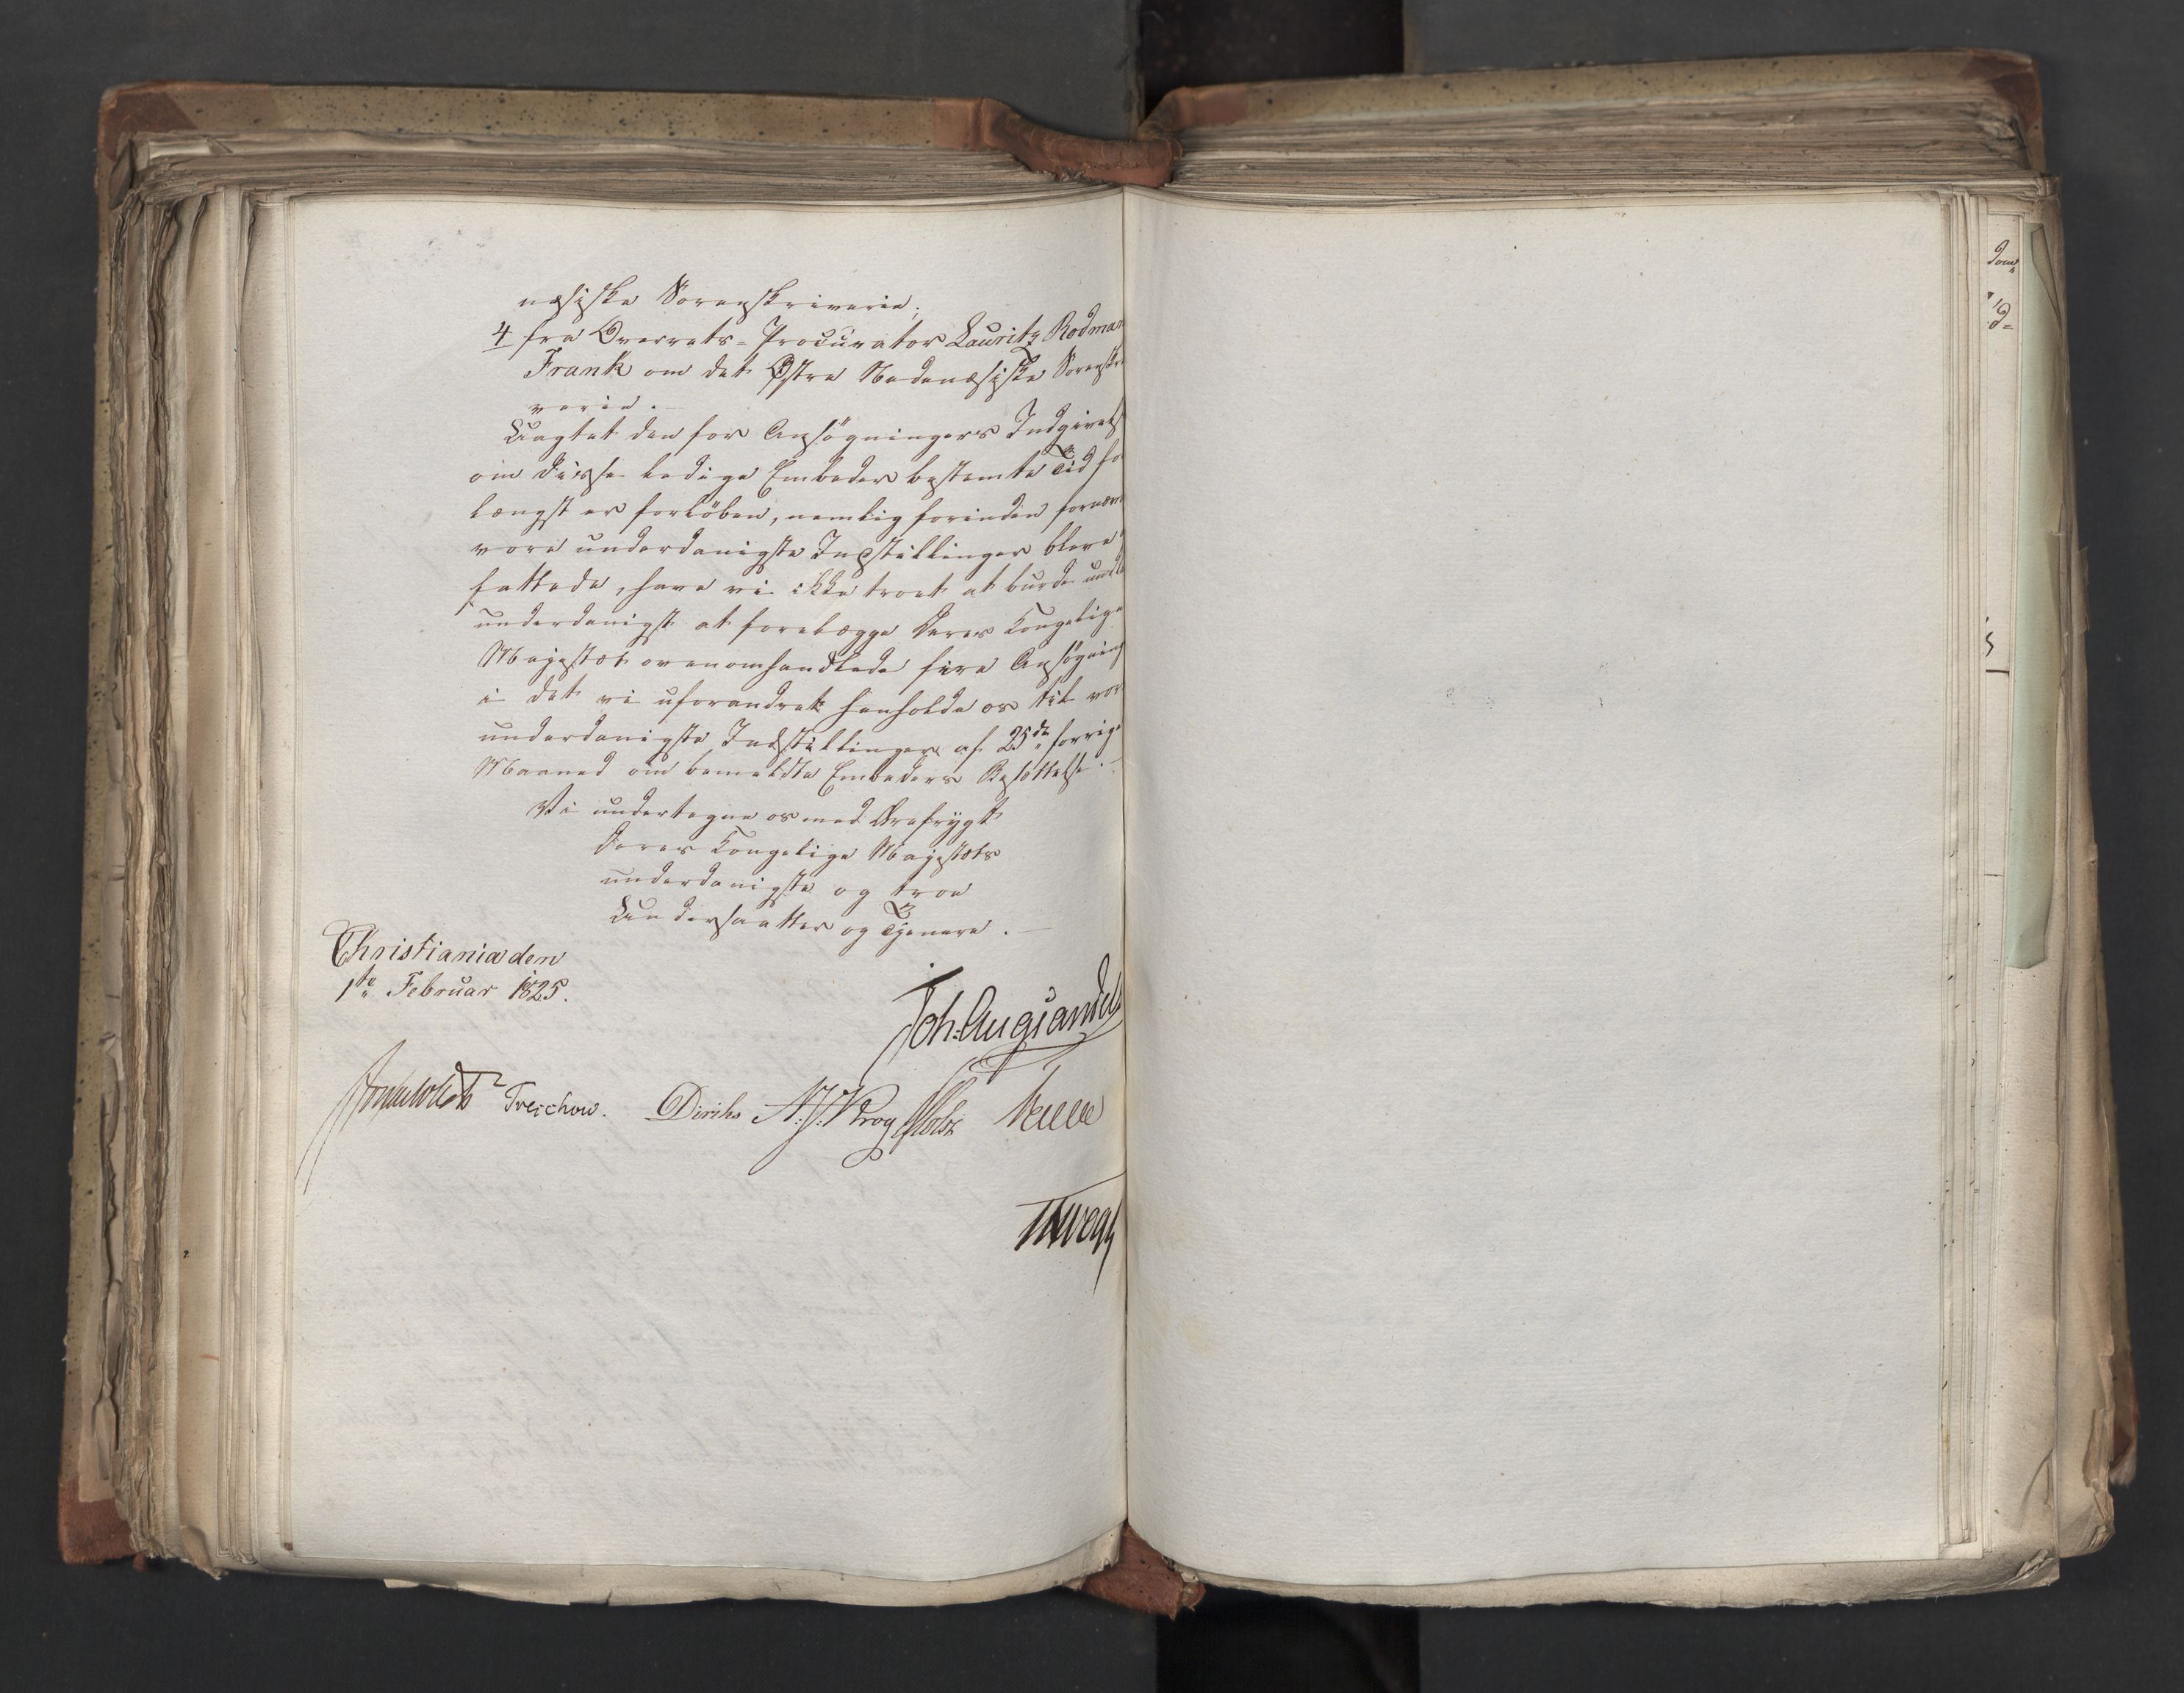 næsiske Sorenskriverie;
4 fra Overrets-Procurator Lauritz Rodman
Frank om det Østre Nedenæsiske Sorenskri
verie.
Uagtet den for Ansögningers Indgivels
om disse ledige Embeder bestemte Tid fo
længst er forløben, nemlig forinden
vore underdanigste Indstillinger bleve
fattede, have vi ikke troet at burde und
underdanigst at forelægge Deres Kongelige
Majestæt ovenomhandlede fire Ansögning
i det vi uforandret henholde os til vor
underdanigste Indstillinger af 25de forrige
Maaned om bemeldte Embeders Besættelse.
Vi undertegne os med Ærefrygt
Deres Kongelige Majestæts
underdanigste og troe
Undersaatter og Tjenere.
Christiania den
1te Februar 1825.
Joh: Aug: Sandels
Sommerhielm Treschow. Diriks A: J: Krog Holst
Thv
Dom